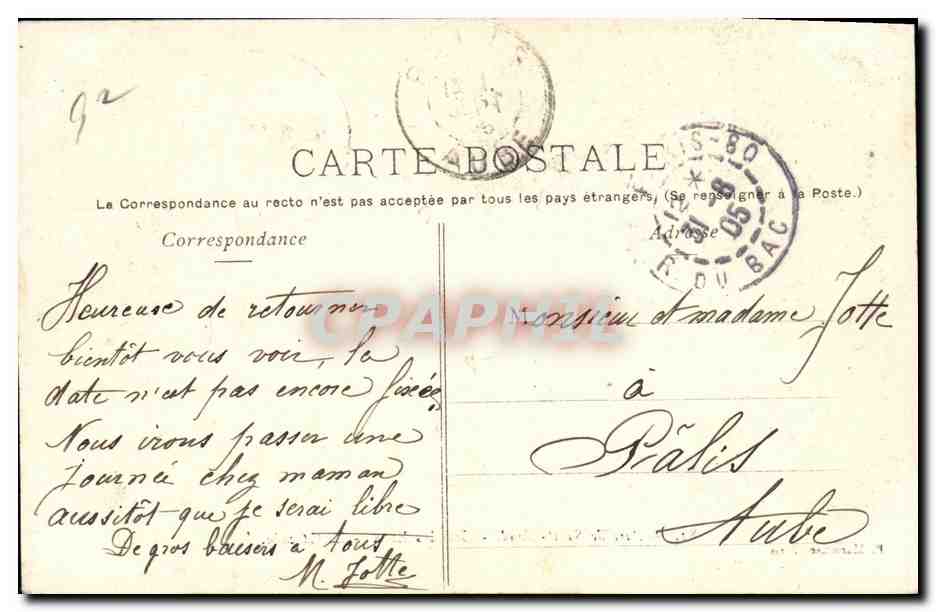 92
CARTE POSTALE
La Correspondance au recto n'est pas acceptée par tous les pays étrangers, (Se renseigner à la Poste.)
Correspondance
Adresse
PARIS-80
31-8
05
R. DU BAC
AUBE
CPAPHIL
Heureuse de retourner
bientôt vous voir, la
date n'est pas encore fixée,
Nous irons passer une
journée chez maman
aussitôt que je serai libre
De gros baisers à tous
M. Jotte
Monsieur et madame Jotte
à
Pâlis
Aube